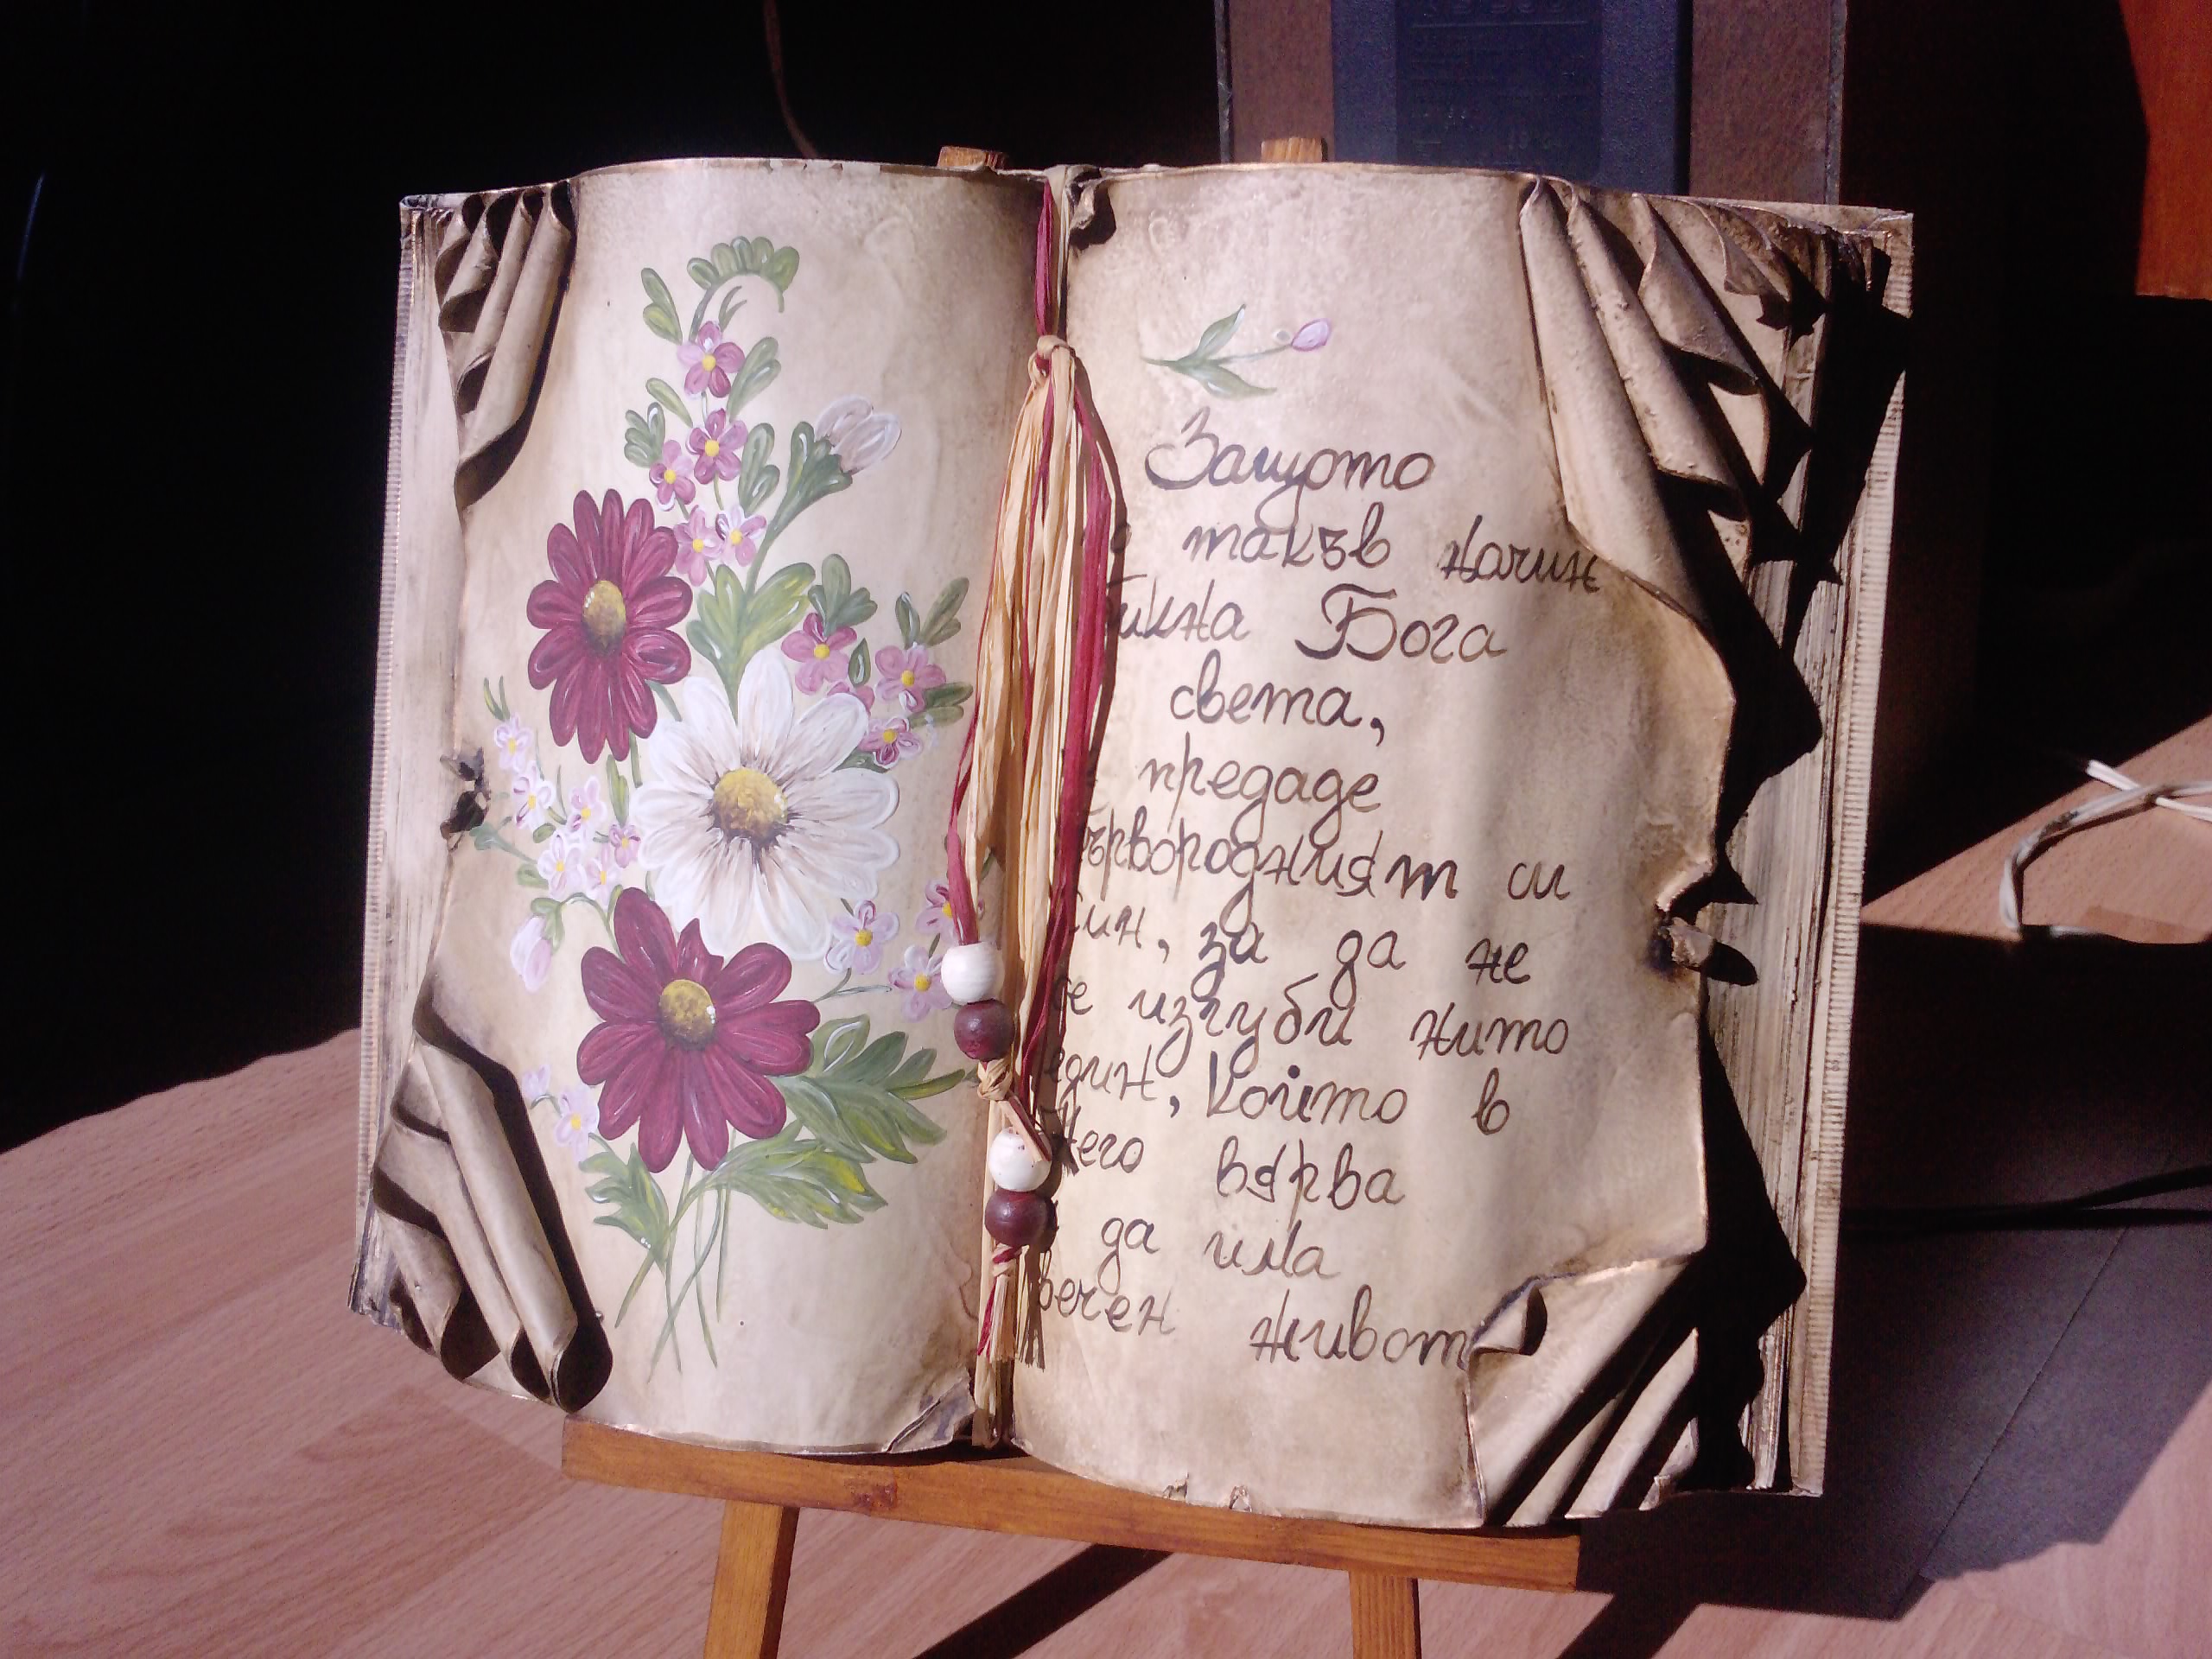 Защото
такъв начин
Бога
света,
предаде
си
за да не
се изгуби нито
един, който в
Него вярва
да има
вечен живот